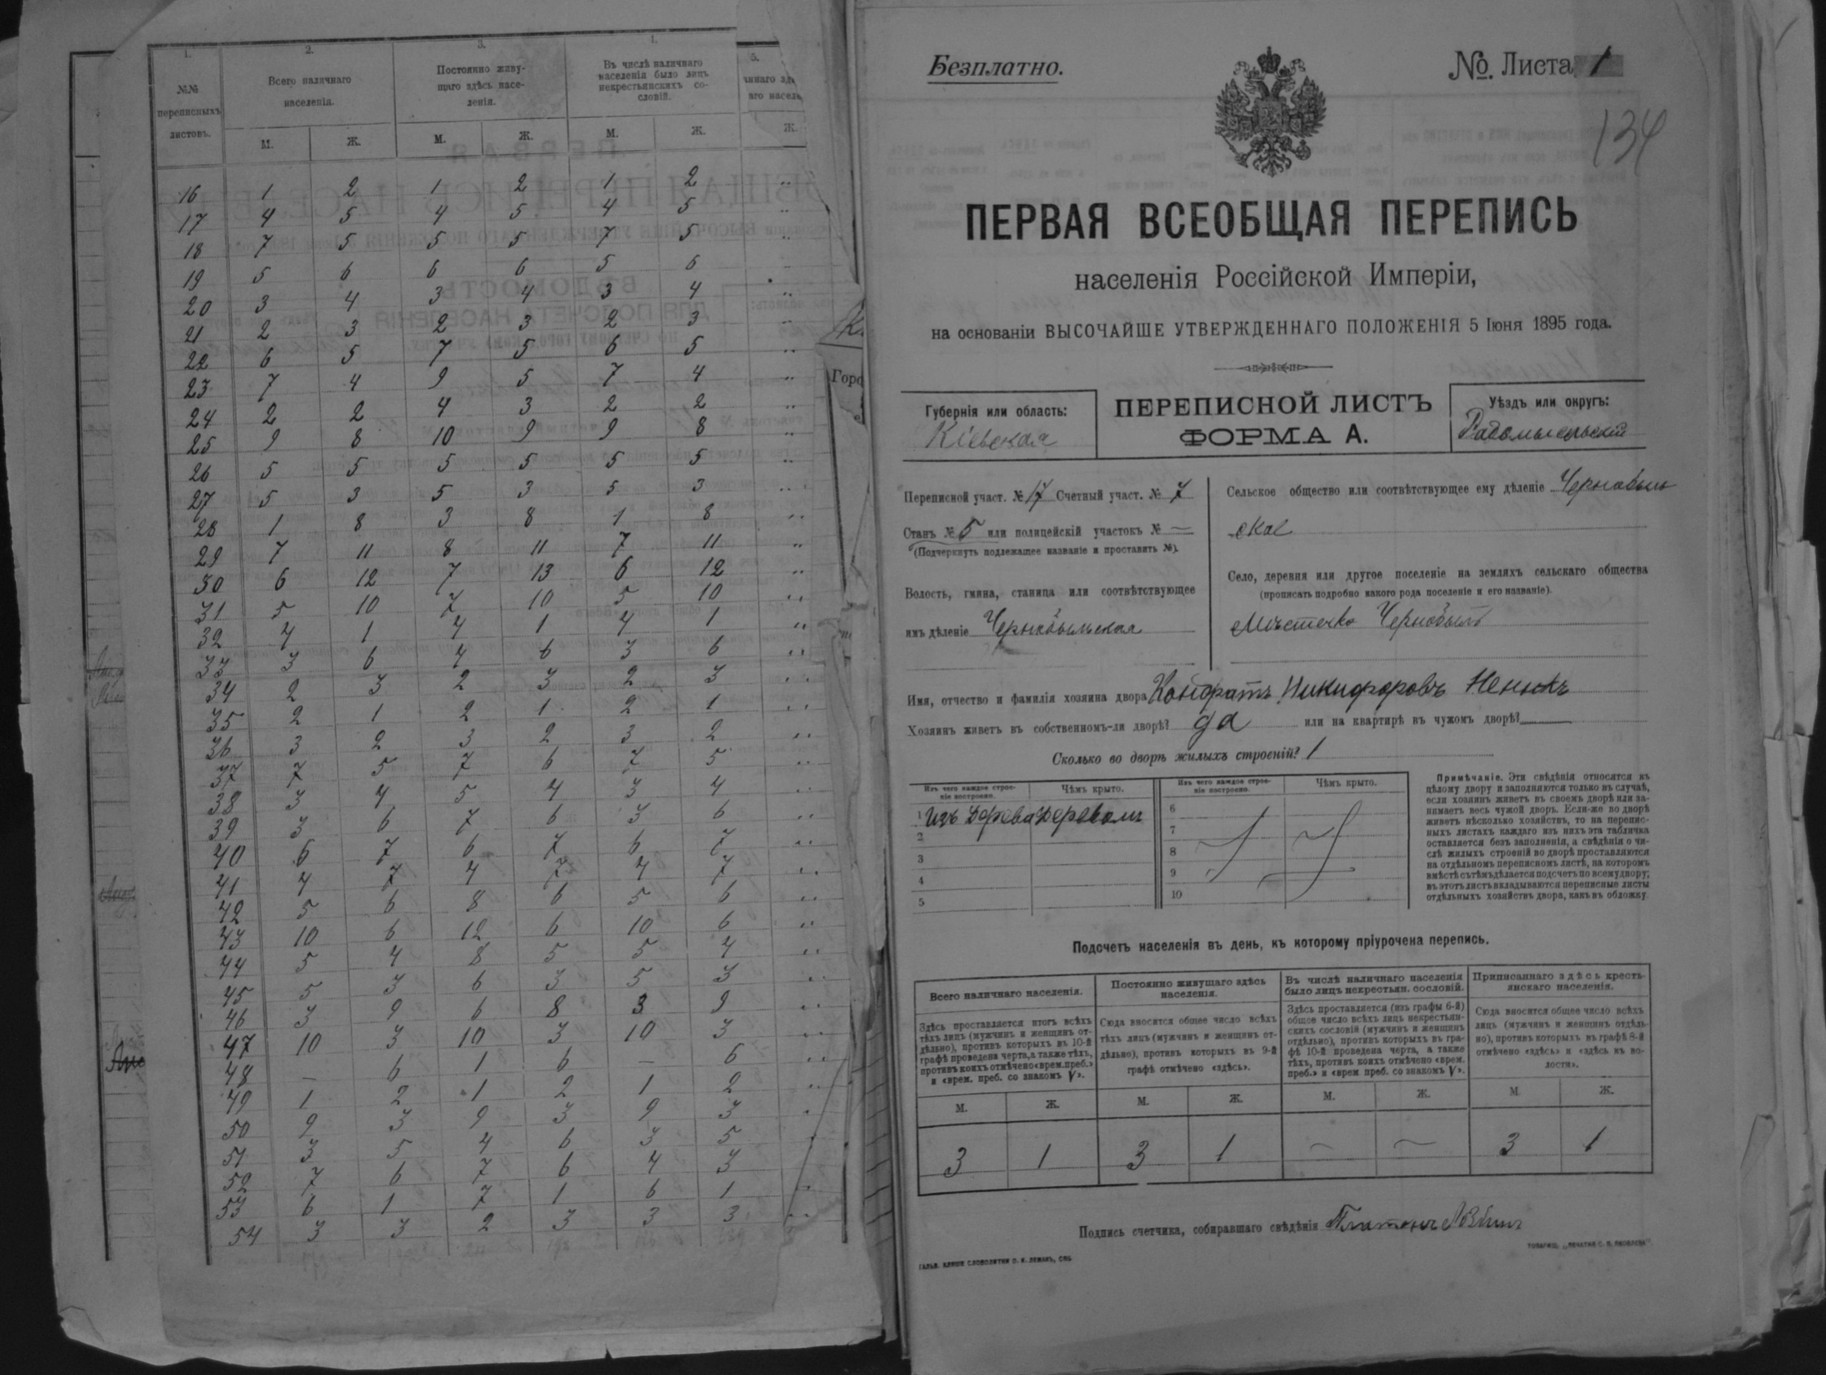 1. 2. 3. 4. 5.
№№ переписныхъ листовъ.
Всего наличнаго населенія.
Постоянно живу-
щаго здѣсь насе-
ленія.
Въ числѣ наличнаго
населенія было лицъ
некрестьянскихъ со-
словій.
М. Ж. М. Ж. М. Ж. Ж.
16 1 2 1 2 1 2 ..
17 4 5 4 5 4 5 ..
18 7 5 5 5 7 5 ..
19 5 6 6 6 5 6
20 3 4 3 4 3 4 ..
21 2 3 2 3 2 3 ..
22 6 5 7 5 6 5 ..
23 7 4 9 5 7 4 ..
24 2 2 4 3 2 2 ..
25 9 8 10 9 9 8 ..
26 5 5 5 5 5 5 ..
27 5 3 5 3 5 3 ..
28 1 8 3 8 1 8 ..
29 7 11 8 11 7 11 ..
30 6 12 7 13 6 12 ..
31 5 10 7 10 5 10 ..
32 4 1 4 1 4 1 ..
33 3 6 4 6 3 6 ..
34 2 3 2 3 2 3 ..
35 2 1 2 1 2 1 ..
36 3 2 3 2 3 2 ..
37 7 5 7 6 7 5 ..
38 3 4 5 4 3 4 ..
39 3 6 7 6 3 6 ..
40 6 7 6 7 6 7 ..
41 4 7 4 7 4 7 ..
42 5 6 8 6 5 6 ..
43 10 6 12 6 10 6 ..
44 5 4 8 5 5 4 ..
45 5 3 6 3 5 3 ..
46 3 9 6 8 3 9 ..
47 10 3 10 3 10 3 ..
48 – 6 1 6 – 6 ..
49 1 2 1 2 1 2 ..
50 9 3 9 3 9 3 .
51 3 5 4 6 3 5 .
52 7 6 7 6 4 3 .
53 6 1 7 1 6 1 ..
54 3 3 2 3 3 3 ..
Безплатно.
№. Листа 1
134
ПЕРВАЯ ВСЕОБЩАЯ ПЕРЕПИСЬ
населенія Россійской Имперіи,
на основаніи ВЫСОЧАЙШЕ УТВЕРЖДЕННАГО ПОЛОЖЕНІЯ 5 Іюня 1895 года.
Губернія или область:
Кіевская
ПЕРЕПИСНОЙ ЛИСТЪ
ФОРМА А.
Уѣздъ или округъ:
Радомысльскій
Переписной участ. № 17 Счетный участ. № 7
Станъ № 5 или полицейскій участокъ № —
(Подчеркнуть подлежащее названіе и проставить №).
Волость, гмина, станица или соотвѣтствующее
имъ дѣленіе Чернобыльская
Сельское общество или соотвѣтствующее ему дѣленіе Чернобыль
ское
Село, деревня или другое поселеніе на земляхъ сельскаго общества
(прописать подробно какого рода поселеніе и его названіе).
Мѣстечко Чернобыль
Имя, отчество и фамилія хозяина двора Кондратъ Никифоровъ Ненюкъ
Хозяинъ живетъ въ собственномъ-ли дворѣ? да или на квартирѣ въ чужомъ дворѣ? —
Сколько во дворѣ жилыхъ строеній? 1
Изъ чего каждое строе-
ніе построено.
Чѣмъ крыто.
Изъ чего каждое строе-
ніе построено.
Чѣмъ крыто.
1 Изъ дерева Деревомъ
2
3
4
5
6
7
8
9
10
Примѣчаніе. Эти свѣдѣнія относятся къ
цѣлому двору и заполняются только въ случаѣ,
если хозяинъ живетъ въ своемъ дворѣ или за-
нимаетъ весь чужой дворъ. Если-же во дворѣ
живетъ нѣсколько хозяйствъ, то на перепис-
ныхъ листахъ каждаго изъ нихъ эта табличка
оставляется безъ заполненія, а свѣдѣнія о чи-
слѣ жилыхъ строеній во дворѣ проставляются
на отдѣльномъ переписномъ листѣ, на которомъ
вмѣстѣ съ тѣмъ дѣлается подсчетъ по всему двору;
въ этотъ листъ вкладываются переписные листы
отдѣльныхъ хозяйствъ двора, какъ въ обложку.
Подсчетъ населенія въ день, къ которому пріурочена перепись.
Всего наличнаго населенія.
Постоянно живущаго здѣсь
населенія.
Въ числѣ наличнаго населенія
было лицъ некрестьян. сословій.
Приписаннаго здѣсь кресть-
янскаго населенія.
Здѣсь проставляется итогъ всѣхъ
тѣхъ лицъ (мужчинъ и женщинъ от-
дѣльно), противъ которыхъ въ 10-й
графѣ проведена черта, а также тѣхъ,
противъ коихъ отмѣчено «врем. преб.»
и «врем. преб. со знакомъ V».
Сюда вносится общее число всѣхъ
тѣхъ лицъ (мужчинъ и женщинъ от-
дѣльно), противъ которыхъ въ 9-й
графѣ отмѣчено «здѣсь».
Здѣсь проставляется (изъ графы 6-й)
общее число всѣхъ лицъ некрестьян-
скихъ сословій (мужчинъ и женщинъ
отдѣльно), противъ которыхъ въ гра-
фѣ 10-й проведена черта, а также
тѣхъ, противъ коихъ отмѣчено «врем.
преб.» и «врем преб. со знакомъ V».
Сюда вносится общее число всѣхъ
лицъ (мужчинъ и женщинъ отдѣль-
но), противъ которыхъ въ графѣ 8-й
отмѣчено «здѣсь» и «здѣсь въ во-
лости».
М. Ж. М. Ж. М. Ж. М. Ж.
3 1 3 1 – – 3 1
Подпись счетчика, собиравшаго свѣдѣнія Платонъ